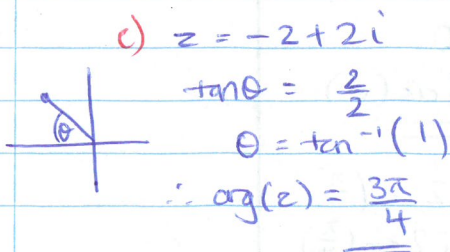 c) z = -2+2i
tanθ = 2/2
θ
θ = tan⁻¹(1)
∴ arg(z) = 3π/4